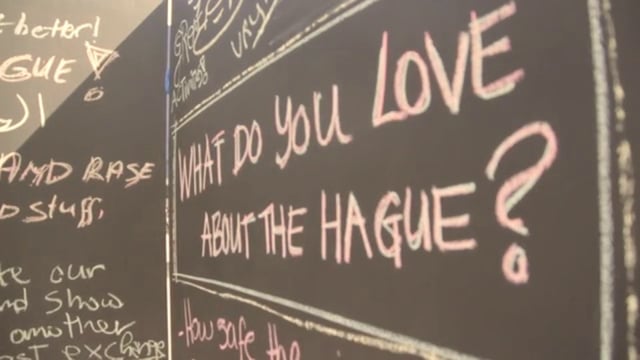 t better!
GUE!
AND RASE
D Stuff,
te our
nd show
another
exchange
WHAT DO YOU LOVE
ABOUT THE HAGUE?
-How safe the